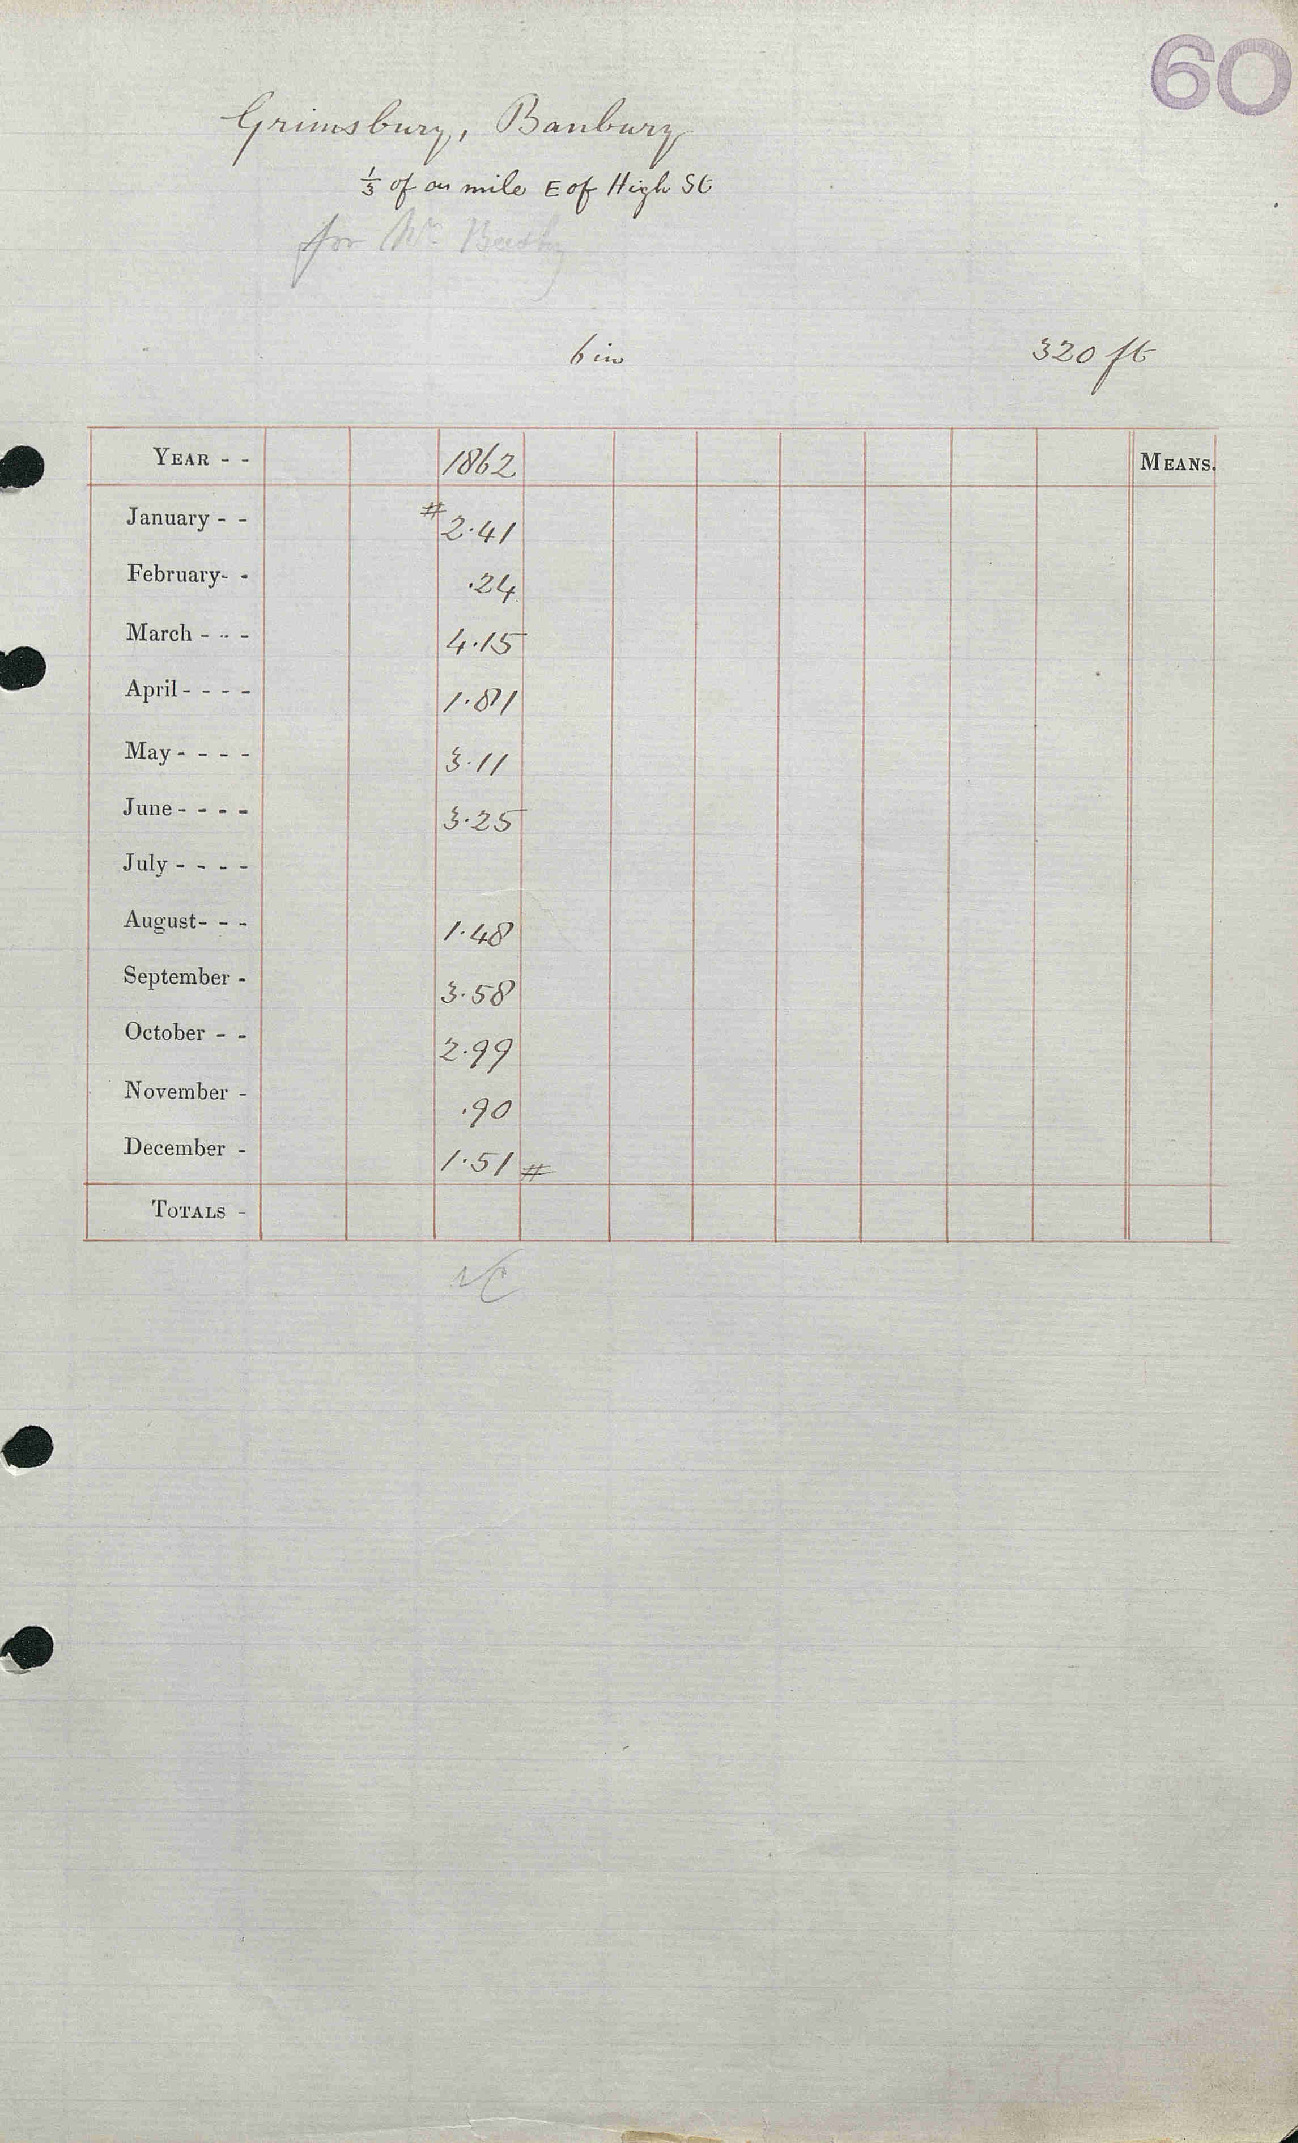 60
Grimsbury, Banbury
⅓ of a mile E of High St
for Mr
6 in 320 ft
YEAR - - 1862 MEANS.
January - - # 2.41
February- - .24
March - - - 4.15
April - - - - 1.81
May - - - - 3.11
June - - - - 3.25
July - - - -
August- - - 1.48
September - 3.58
October - - 2.99
November - .90
December - 1.51 #
TOTALS -